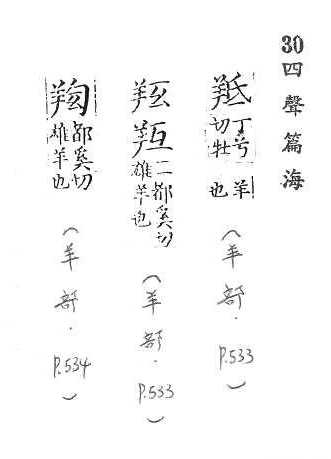 30 四聲篇海
羝丁兮切牡羊也(羊部.P.533)
二都奚切雄羊也(羊部.P.533)
都奚切雄羊也(羊部.P.534)